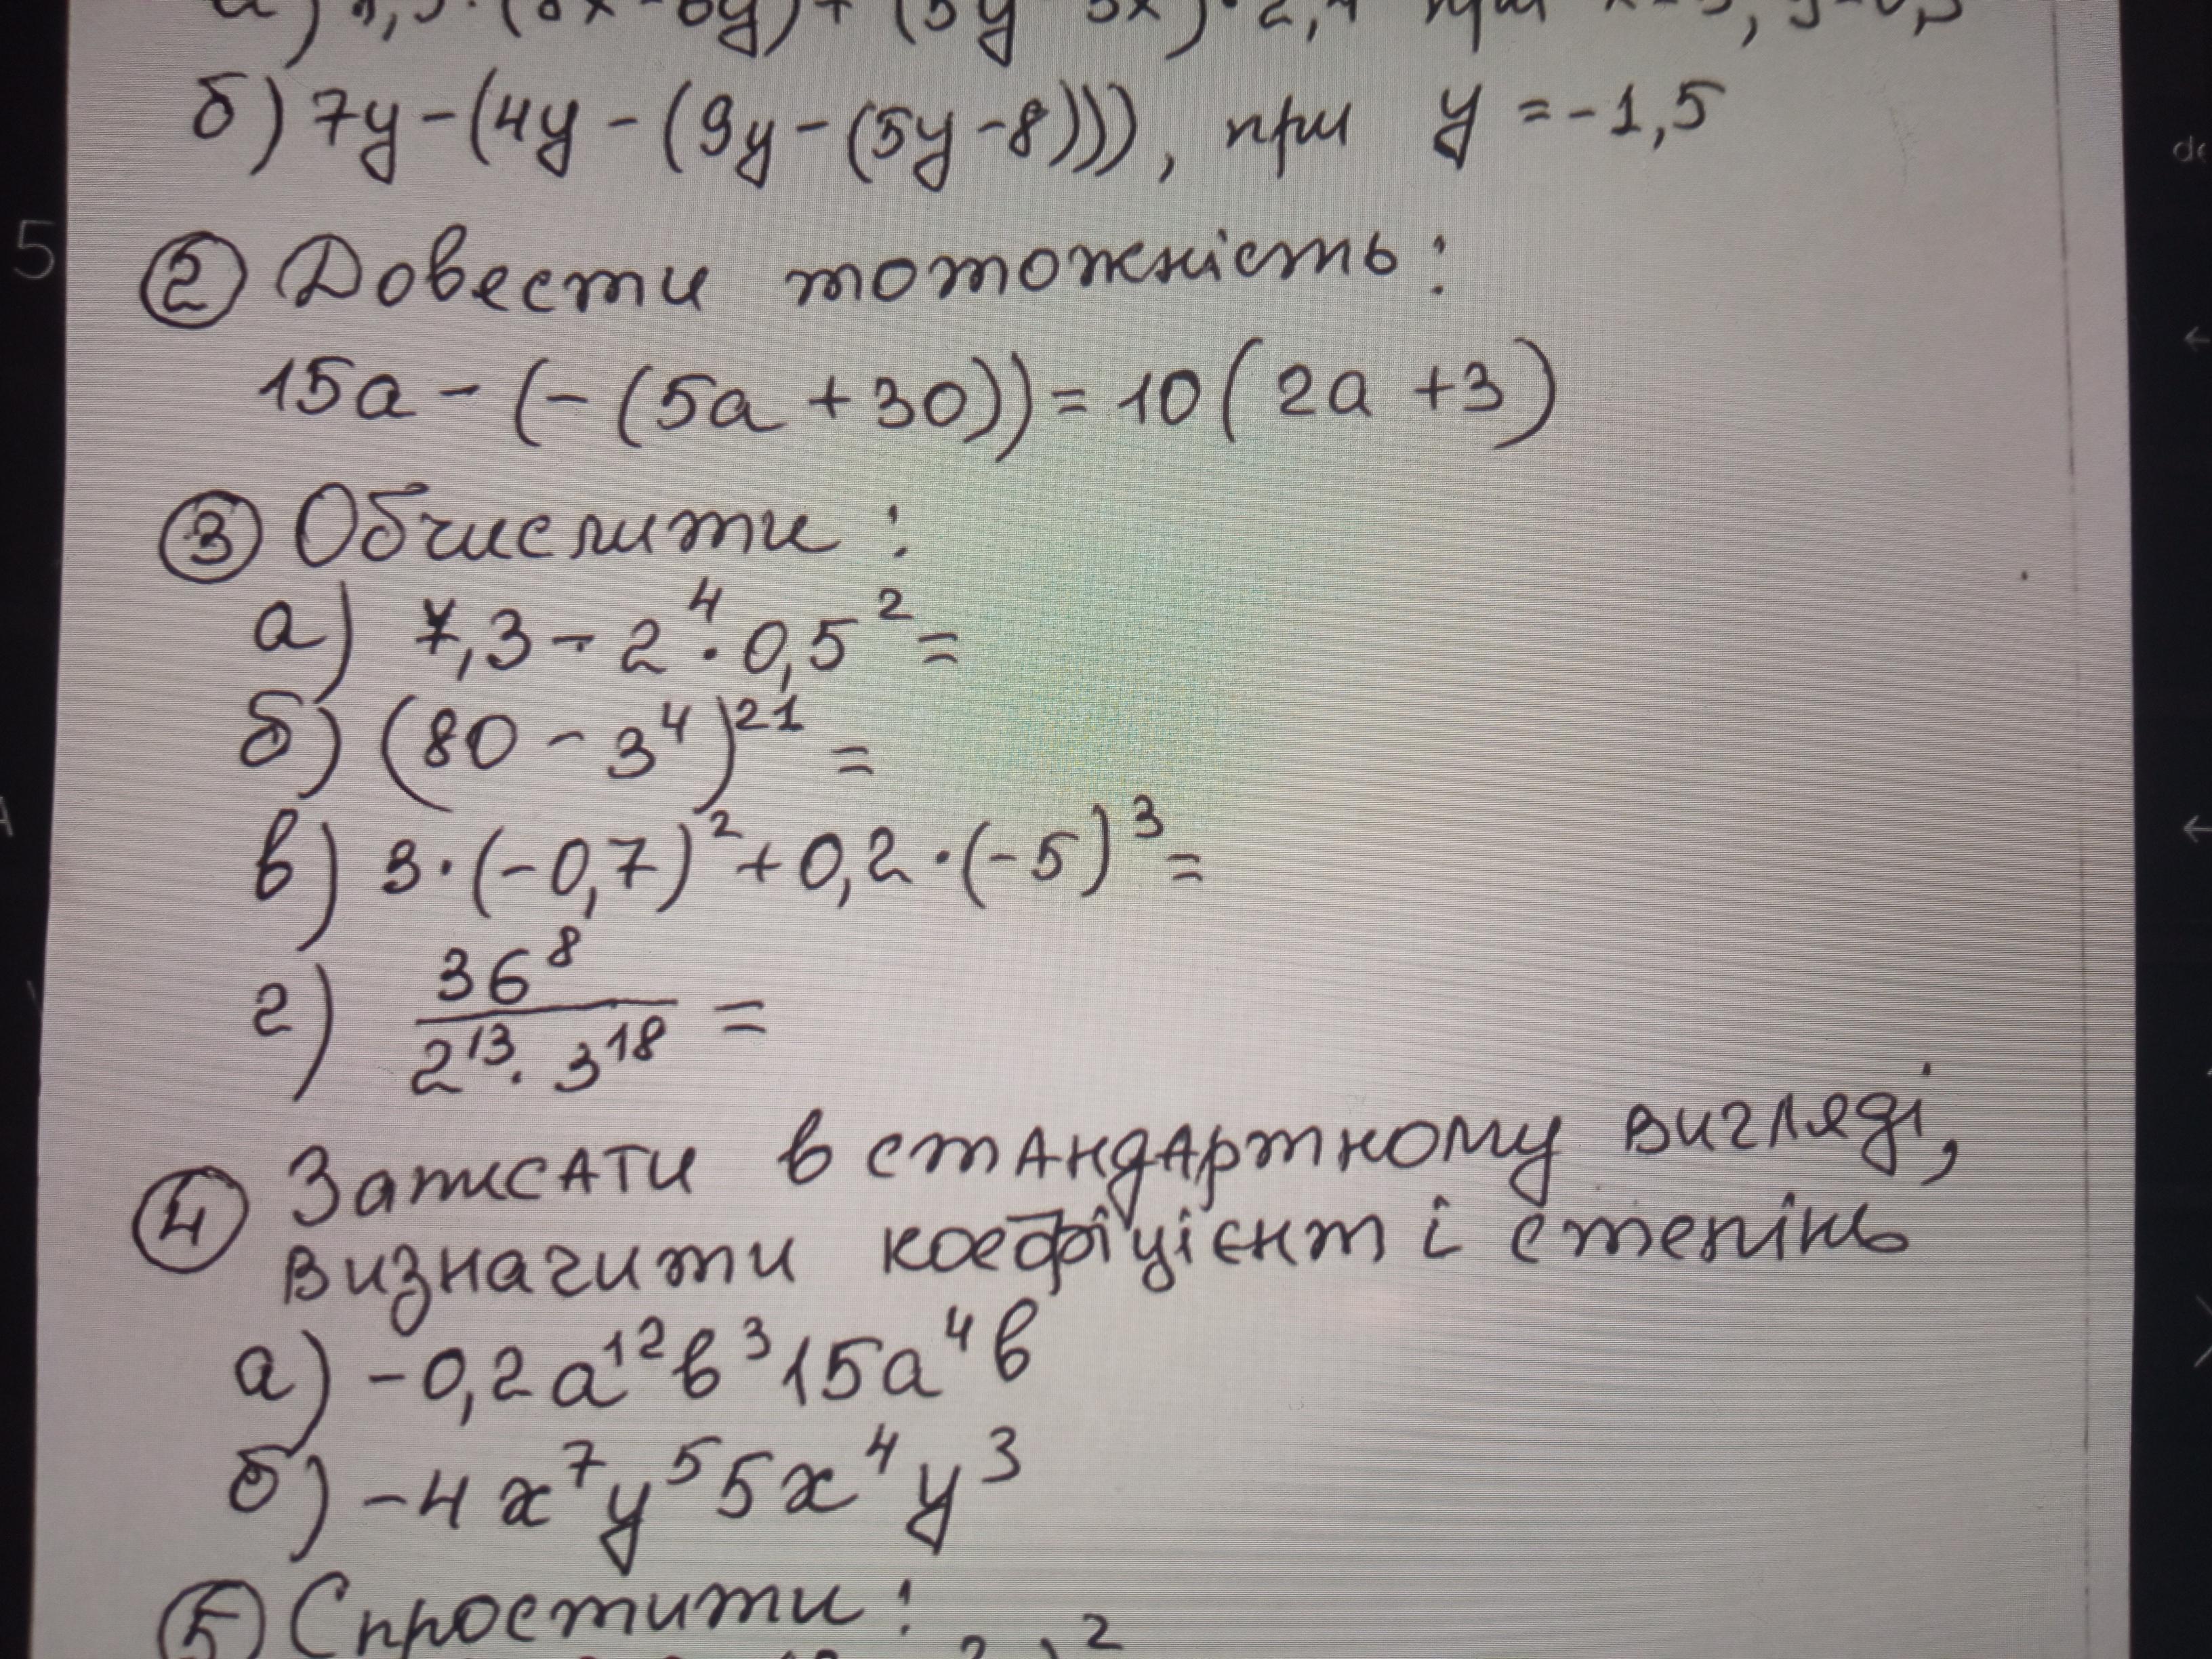 б) 7y-(4y-(9y-(5y-8))), при y=-1,5
② Довести тотожність:
15a-(-(5a+30))=10(2a+3)
③ Обчислити:
а) 7,3-2⁴·0,5²=
б) (80-3⁴)²¹=
в) 3·(-0,7)²+0,2·(-5)³=
г) 36⁸/2¹³·3¹⁸=
④ Записати в стандартному вигляді,
визначити коефіцієнт і степінь
а) -0,2a¹²b³15a⁴b
б) -4x⁷y⁵5x⁴y³
⑤ Спростити: